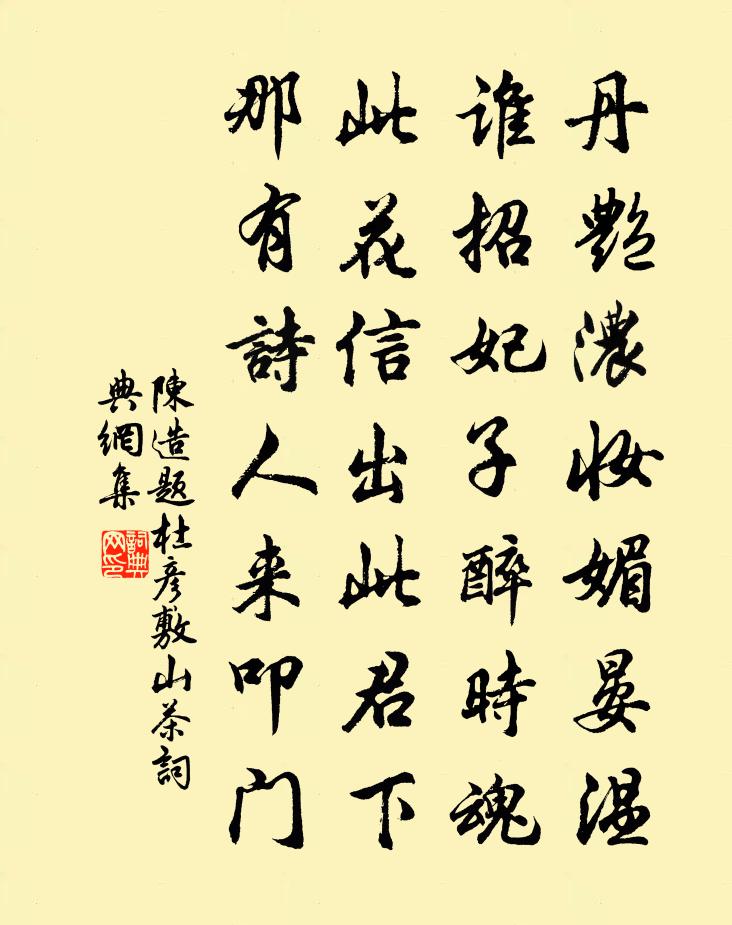 丹艷濃妝媚晏温
谁招妃子醉時魂
此花信出此君下
那有詩人来叩门
陳造题杜彦敷山茶詞
典網集
詞典
网印